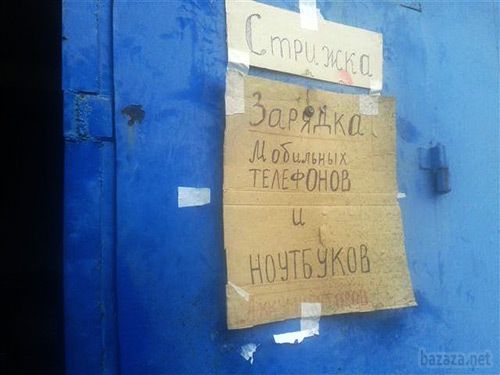 Стрижка
Зарядка
Мобильных
ТЕЛЕФОНОВ
и
НОУТБУКОВ
bazaza.net